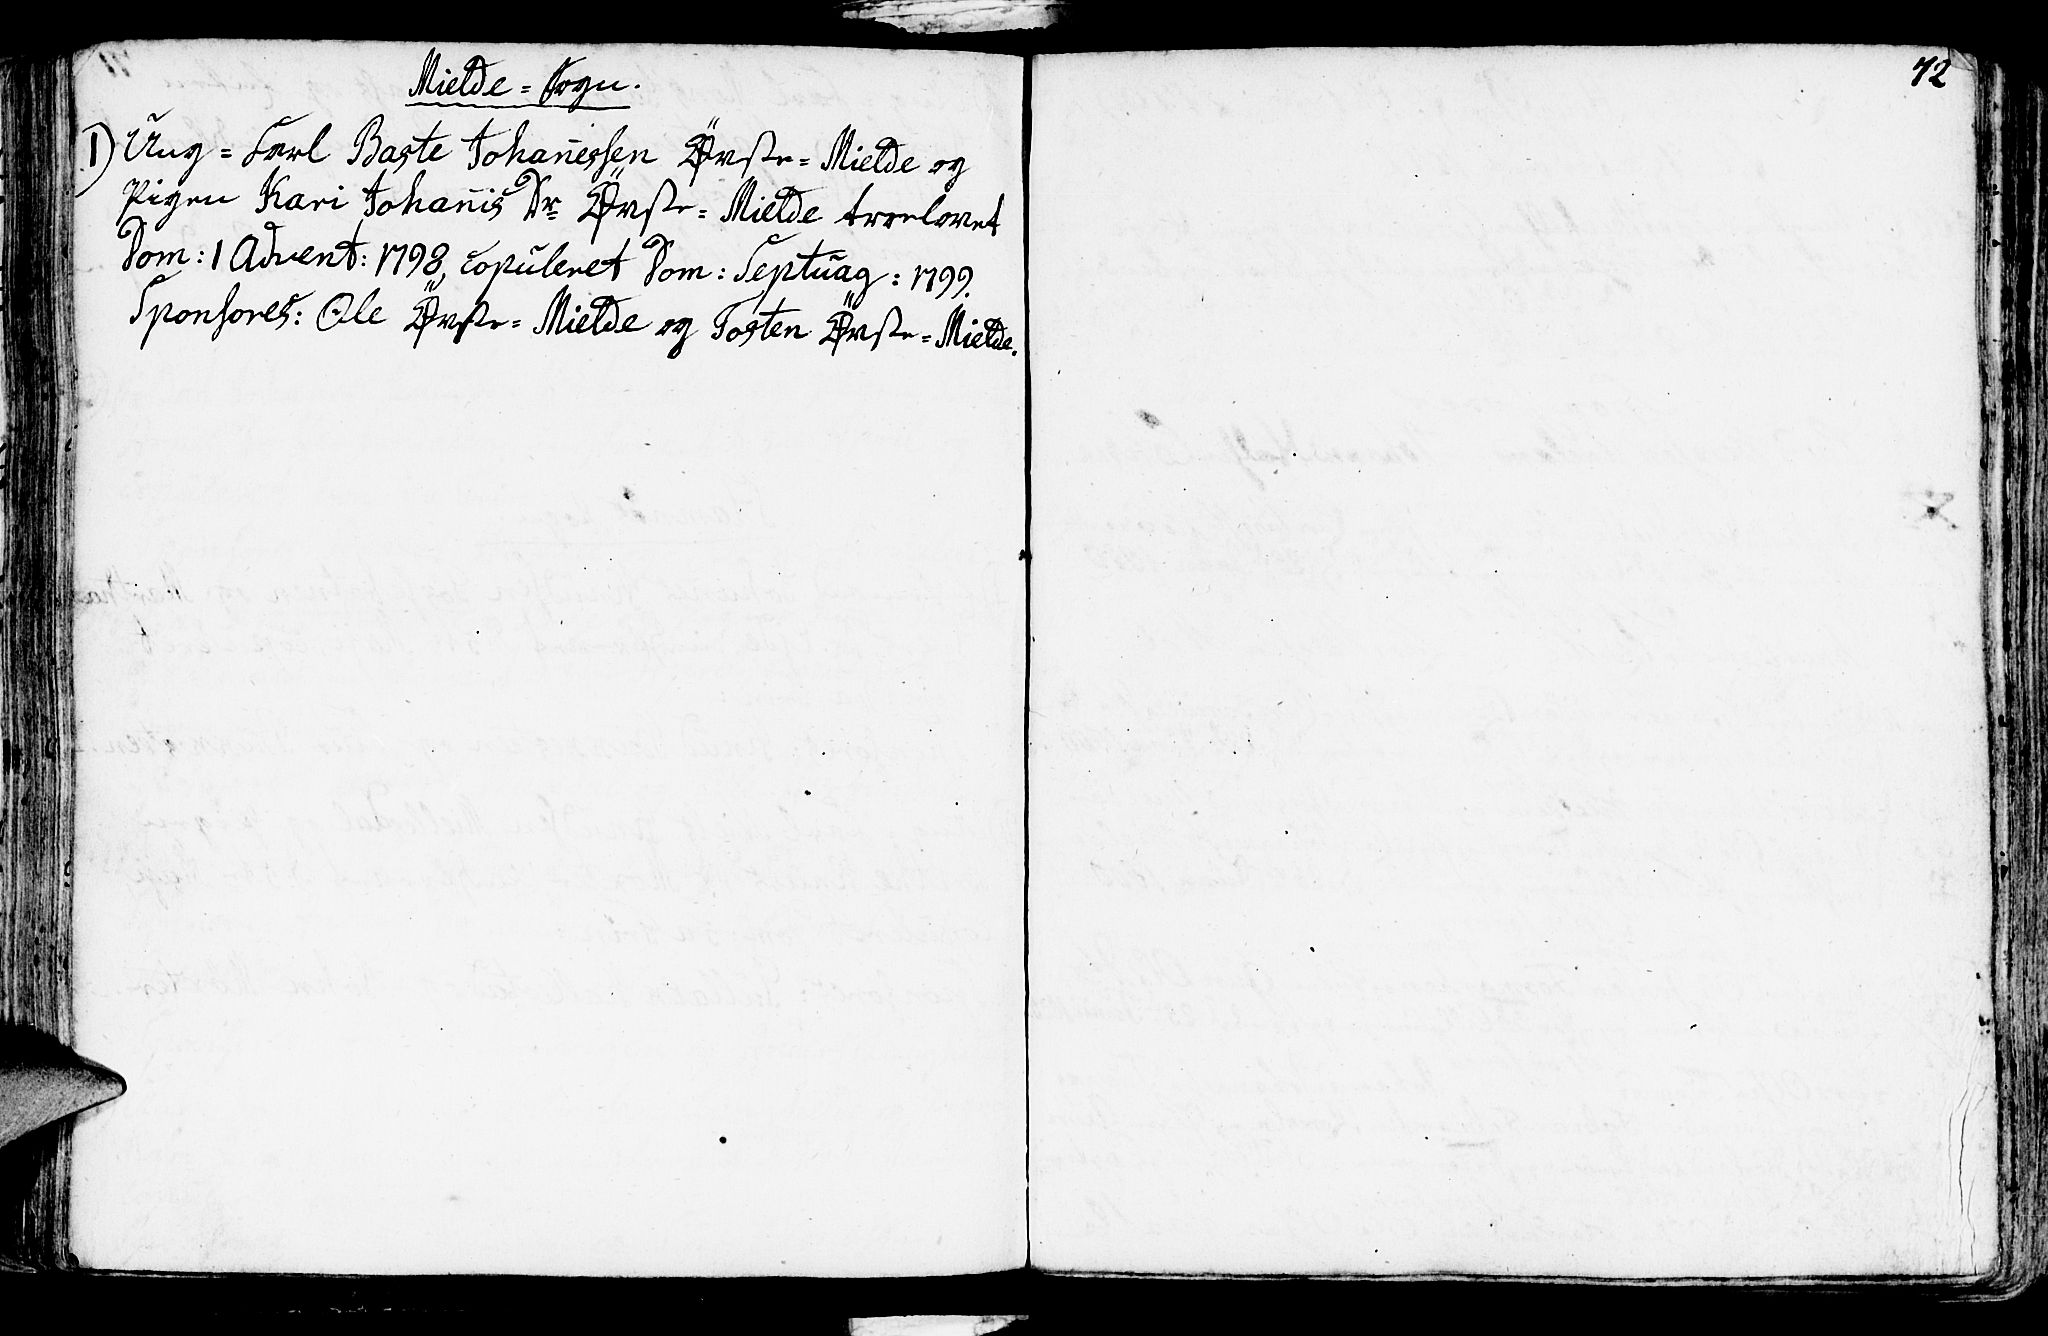 Mielde=Sogn.
72
1) Ung=Karl Baste Johanessen Øvste=Mielde og
Pigen Kari Johanis Dr Øvste=Mielde troelovet
Dom: 1 Advent: 1798, copuleret Dom: Septuag: 1799.
Sponsores: Ole Øvste=Mielde og Tosten Øvste=Mielde.